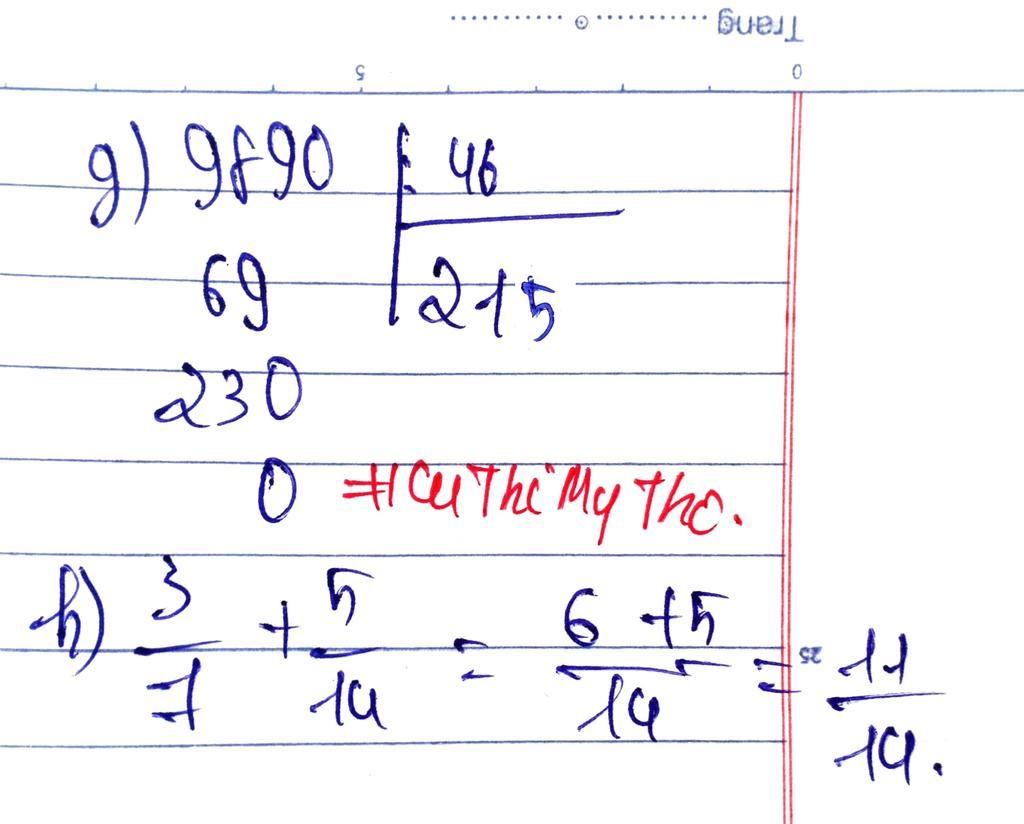 Trang
0 5
g) 9890 : 46
69 215
230
0 #CuThiMyTho.
h) 3/7 + 5/14 = (6 + 5)/14 = 11/14.
25